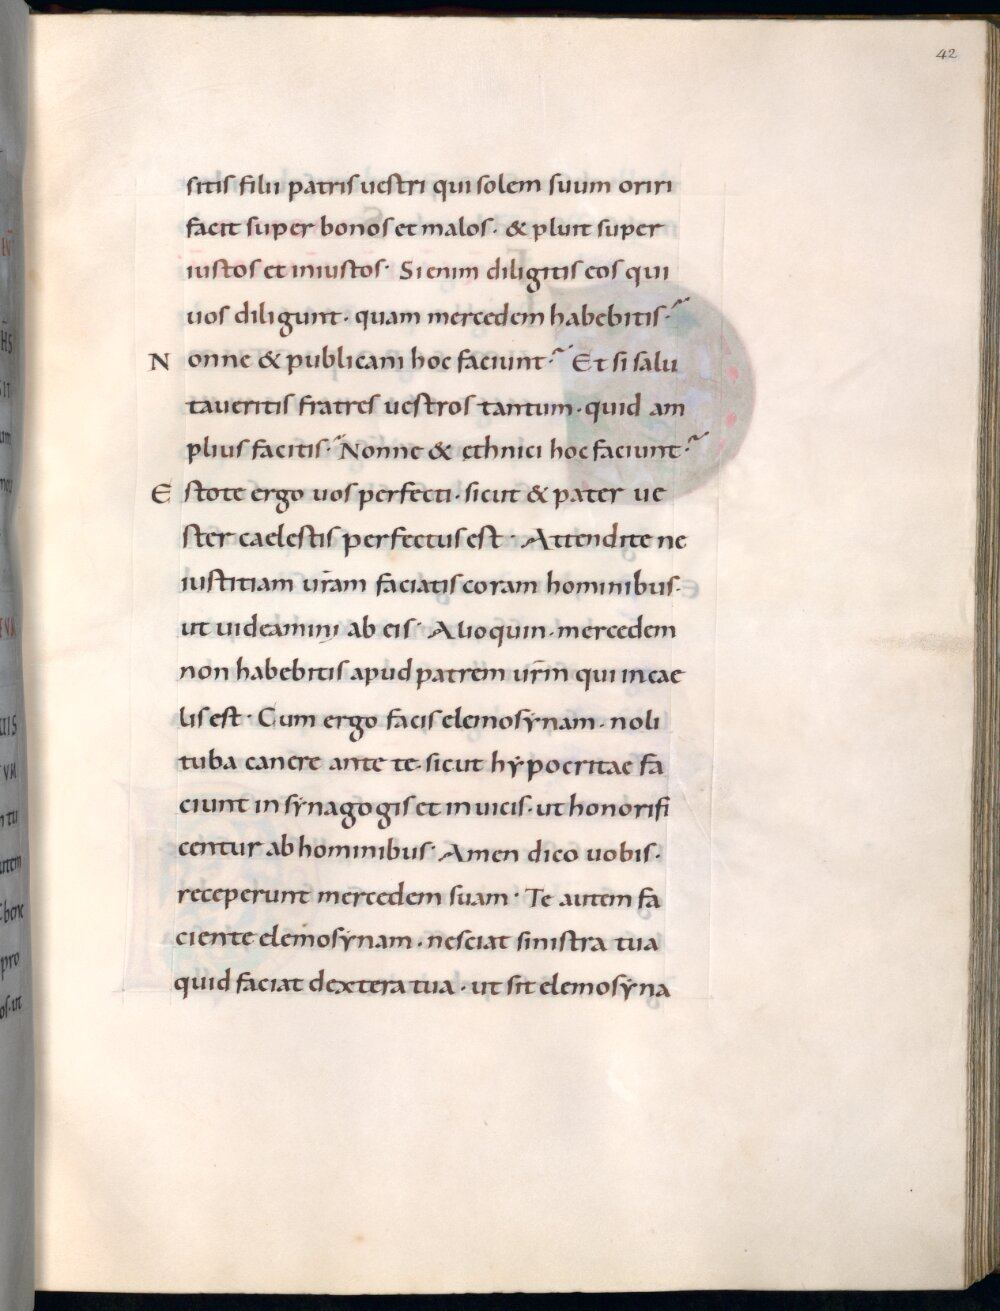 42
sitis filii patris uestri qui solem suum oriri
facit super bonos et malos · & pluit super
iustos et iniustos · Si enim diligitis eos qui
uos diligunt · quam mercedem habebitis ·~
N onne & publicani hoc faciunt ·~ Et si salu
taueritis fratres uestros tantum · quid am
plius facitis ·~ Nonne & ethnici hoc faciunt ·~
E stote ergo uos perfecti · sicut & pater ue
ster caelestis perfectus est · Attendite ne
iustitiam ur̄am faciatis coram hominibus ·
ut uideamini ab eis · Alioquin · mercedem
non habebitis apud patrem ur̄m qui in cae
lis est · Cum ergo facis elemosẏnam · noli
tuba canere ante te · sicut hẏpocritae fa
ciunt in sẏnagogis et in uicis · ut honorifi
centur ab hominibus · Amen dico uobis ·
receperunt mercedem suam · Te autem fa
ciente elemosẏnam · nesciat sinistra tua
quid faciat dextera tua · ut sit elemosẏna